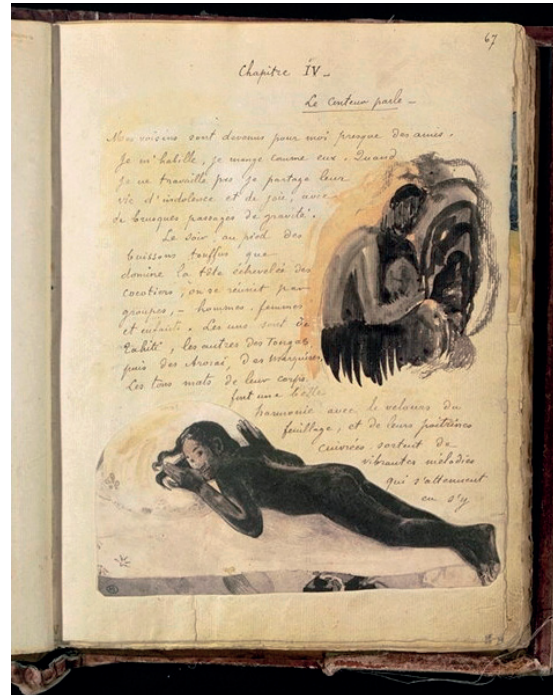 67
Chapitre IV_
Le conteur parle _
Mes voisins sont devenus pour moi presque des amis.
Je m'habille, je mange comme eux. Quand
je ne travaille pas je partage leur
vie d'indolence et de joie, avec
de brusques passages de gravité.
Le soir, au pied des
buissons touffus que
domine la tête échevelée des
cocotiers, on se réunit par
groupes, - hommes, femmes
et enfants. Les uns sont de
Tahiti, les autres des Tongas,
puis des Arorai, des Marquises.
Les tons mats de leur corps
font une belle
harmonie avec le velours du
feuillage, et de leurs poitrines
cuivrées sortent de
vibrantes mélodies
qui s'atténuent
en s'y